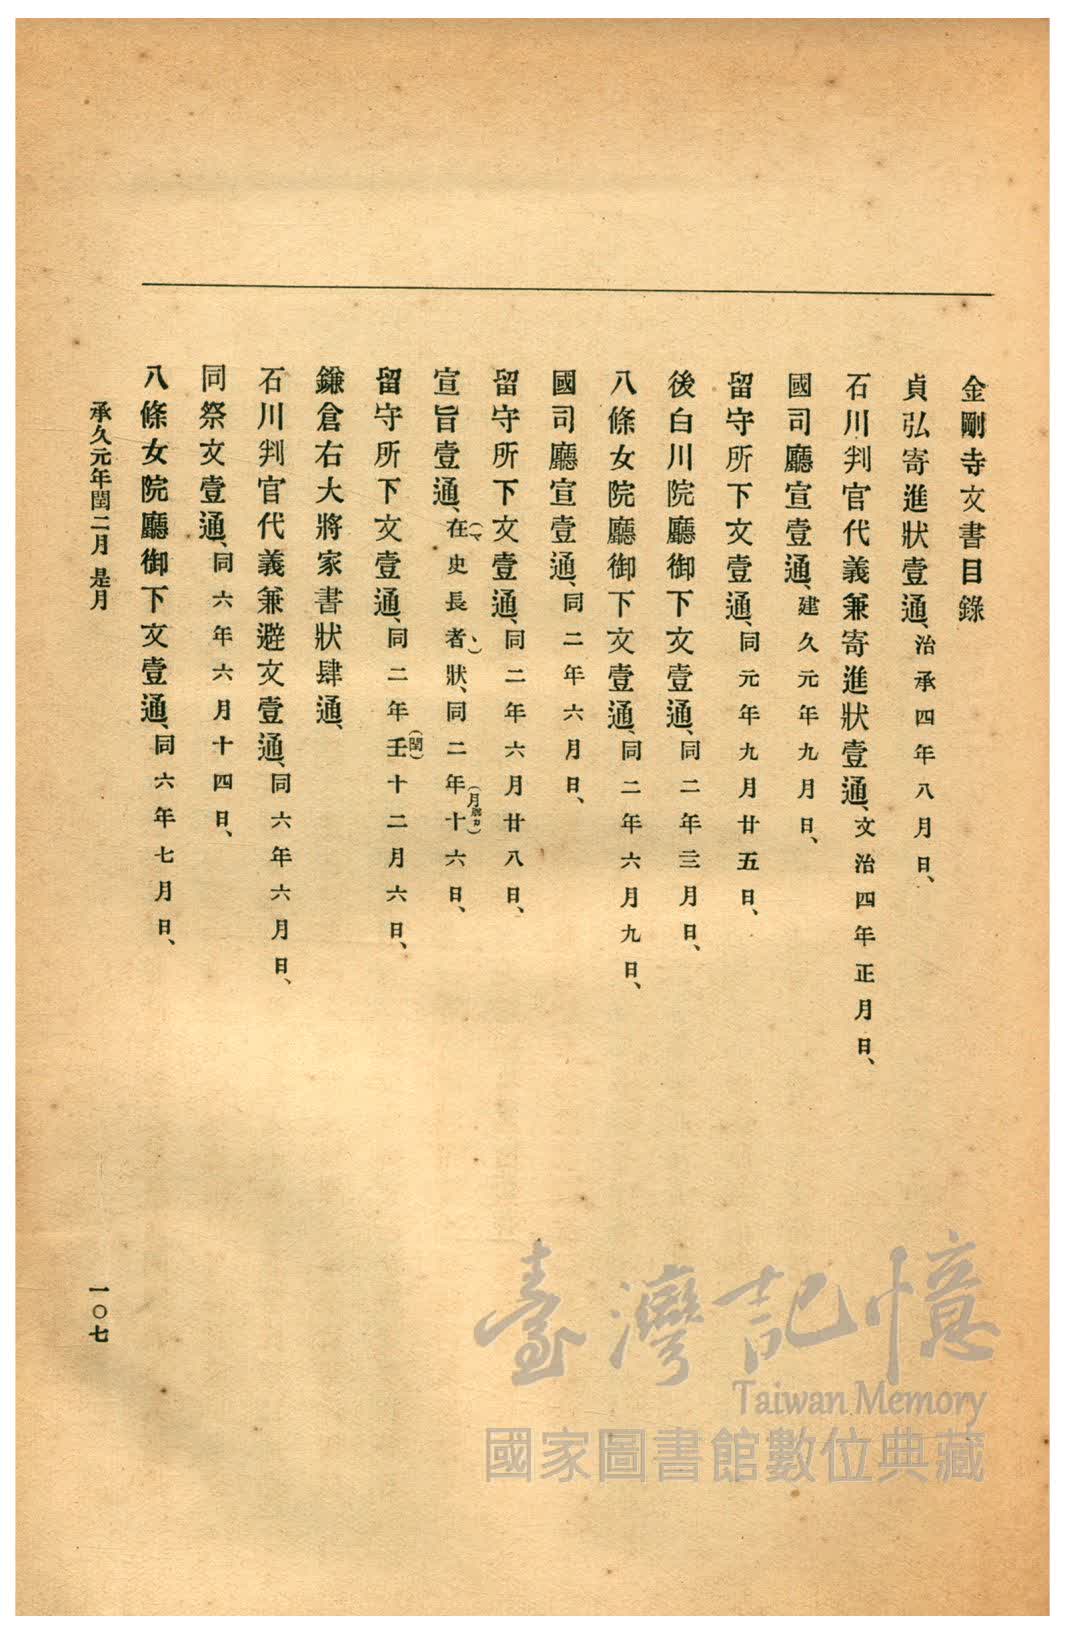 金剛寺文書目錄
貞弘寄進狀壹通、治承四年八月日、
石川判官代義兼寄進狀壹通、文治四年正月日、
國司廳宣壹通、建久元年九月日、
留守所下文壹通、同元年九月廿五日、
後白川院廳御下文壹通、同二年三月日、
八條女院廳御下文壹通、同二年六月九日、
國司廳宣壹通、同二年六月日、
留守所下文壹通、同二年六月廿八日、
宣旨壹通、在史長者狀、同二年十六日、
(マ、)
(月脫カ)
留守所下文壹通、同二年壬十二月六日、
(閏)
鎌倉右大將家書狀肆通、
石川判官代義兼避文壹通、同六年六月日、
同祭文壹通、同六年六月十四日、
八條女院廳御下文壹通、同六年七月日、
承久元年閏二月 是月
一〇七
臺灣記憶
Taiwan Memory
國家圖書館數位典藏